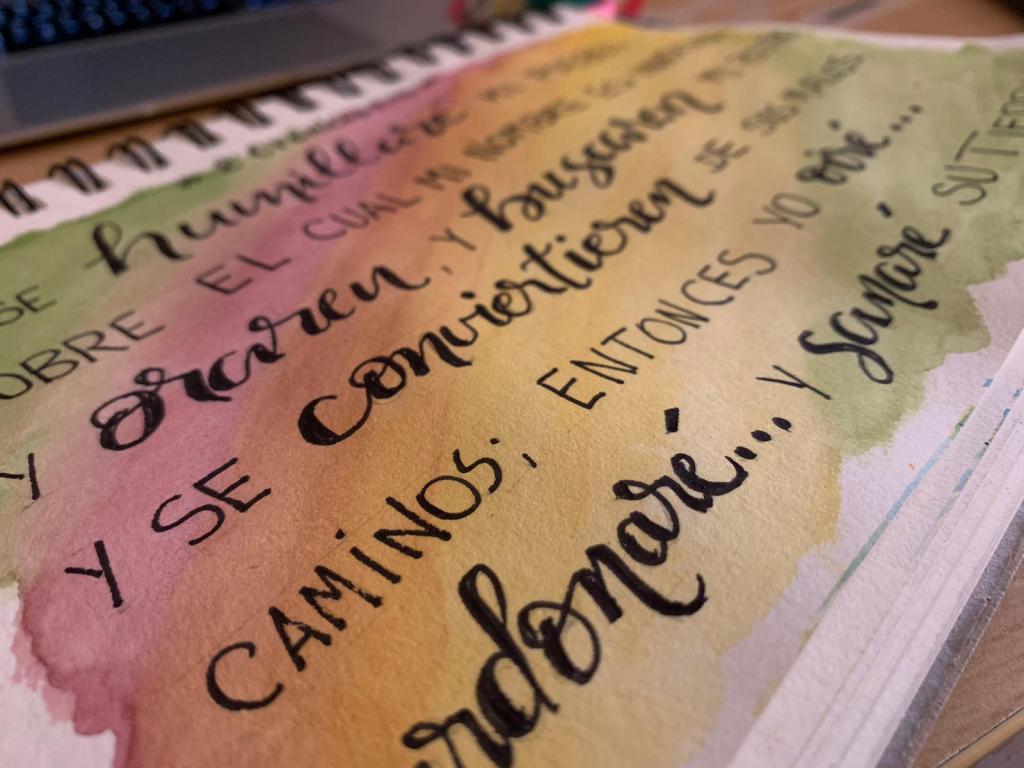 SE humillare MI PUEBLO
OBRE EL CUAL MI NOMBRE ES
Y oraren, Y buscaren MI
Y SE conviertieren DE SUS MALOS
CAMINOS; ENTONCES YO oiré...
rdonaré... Y sanaré SU TIERR